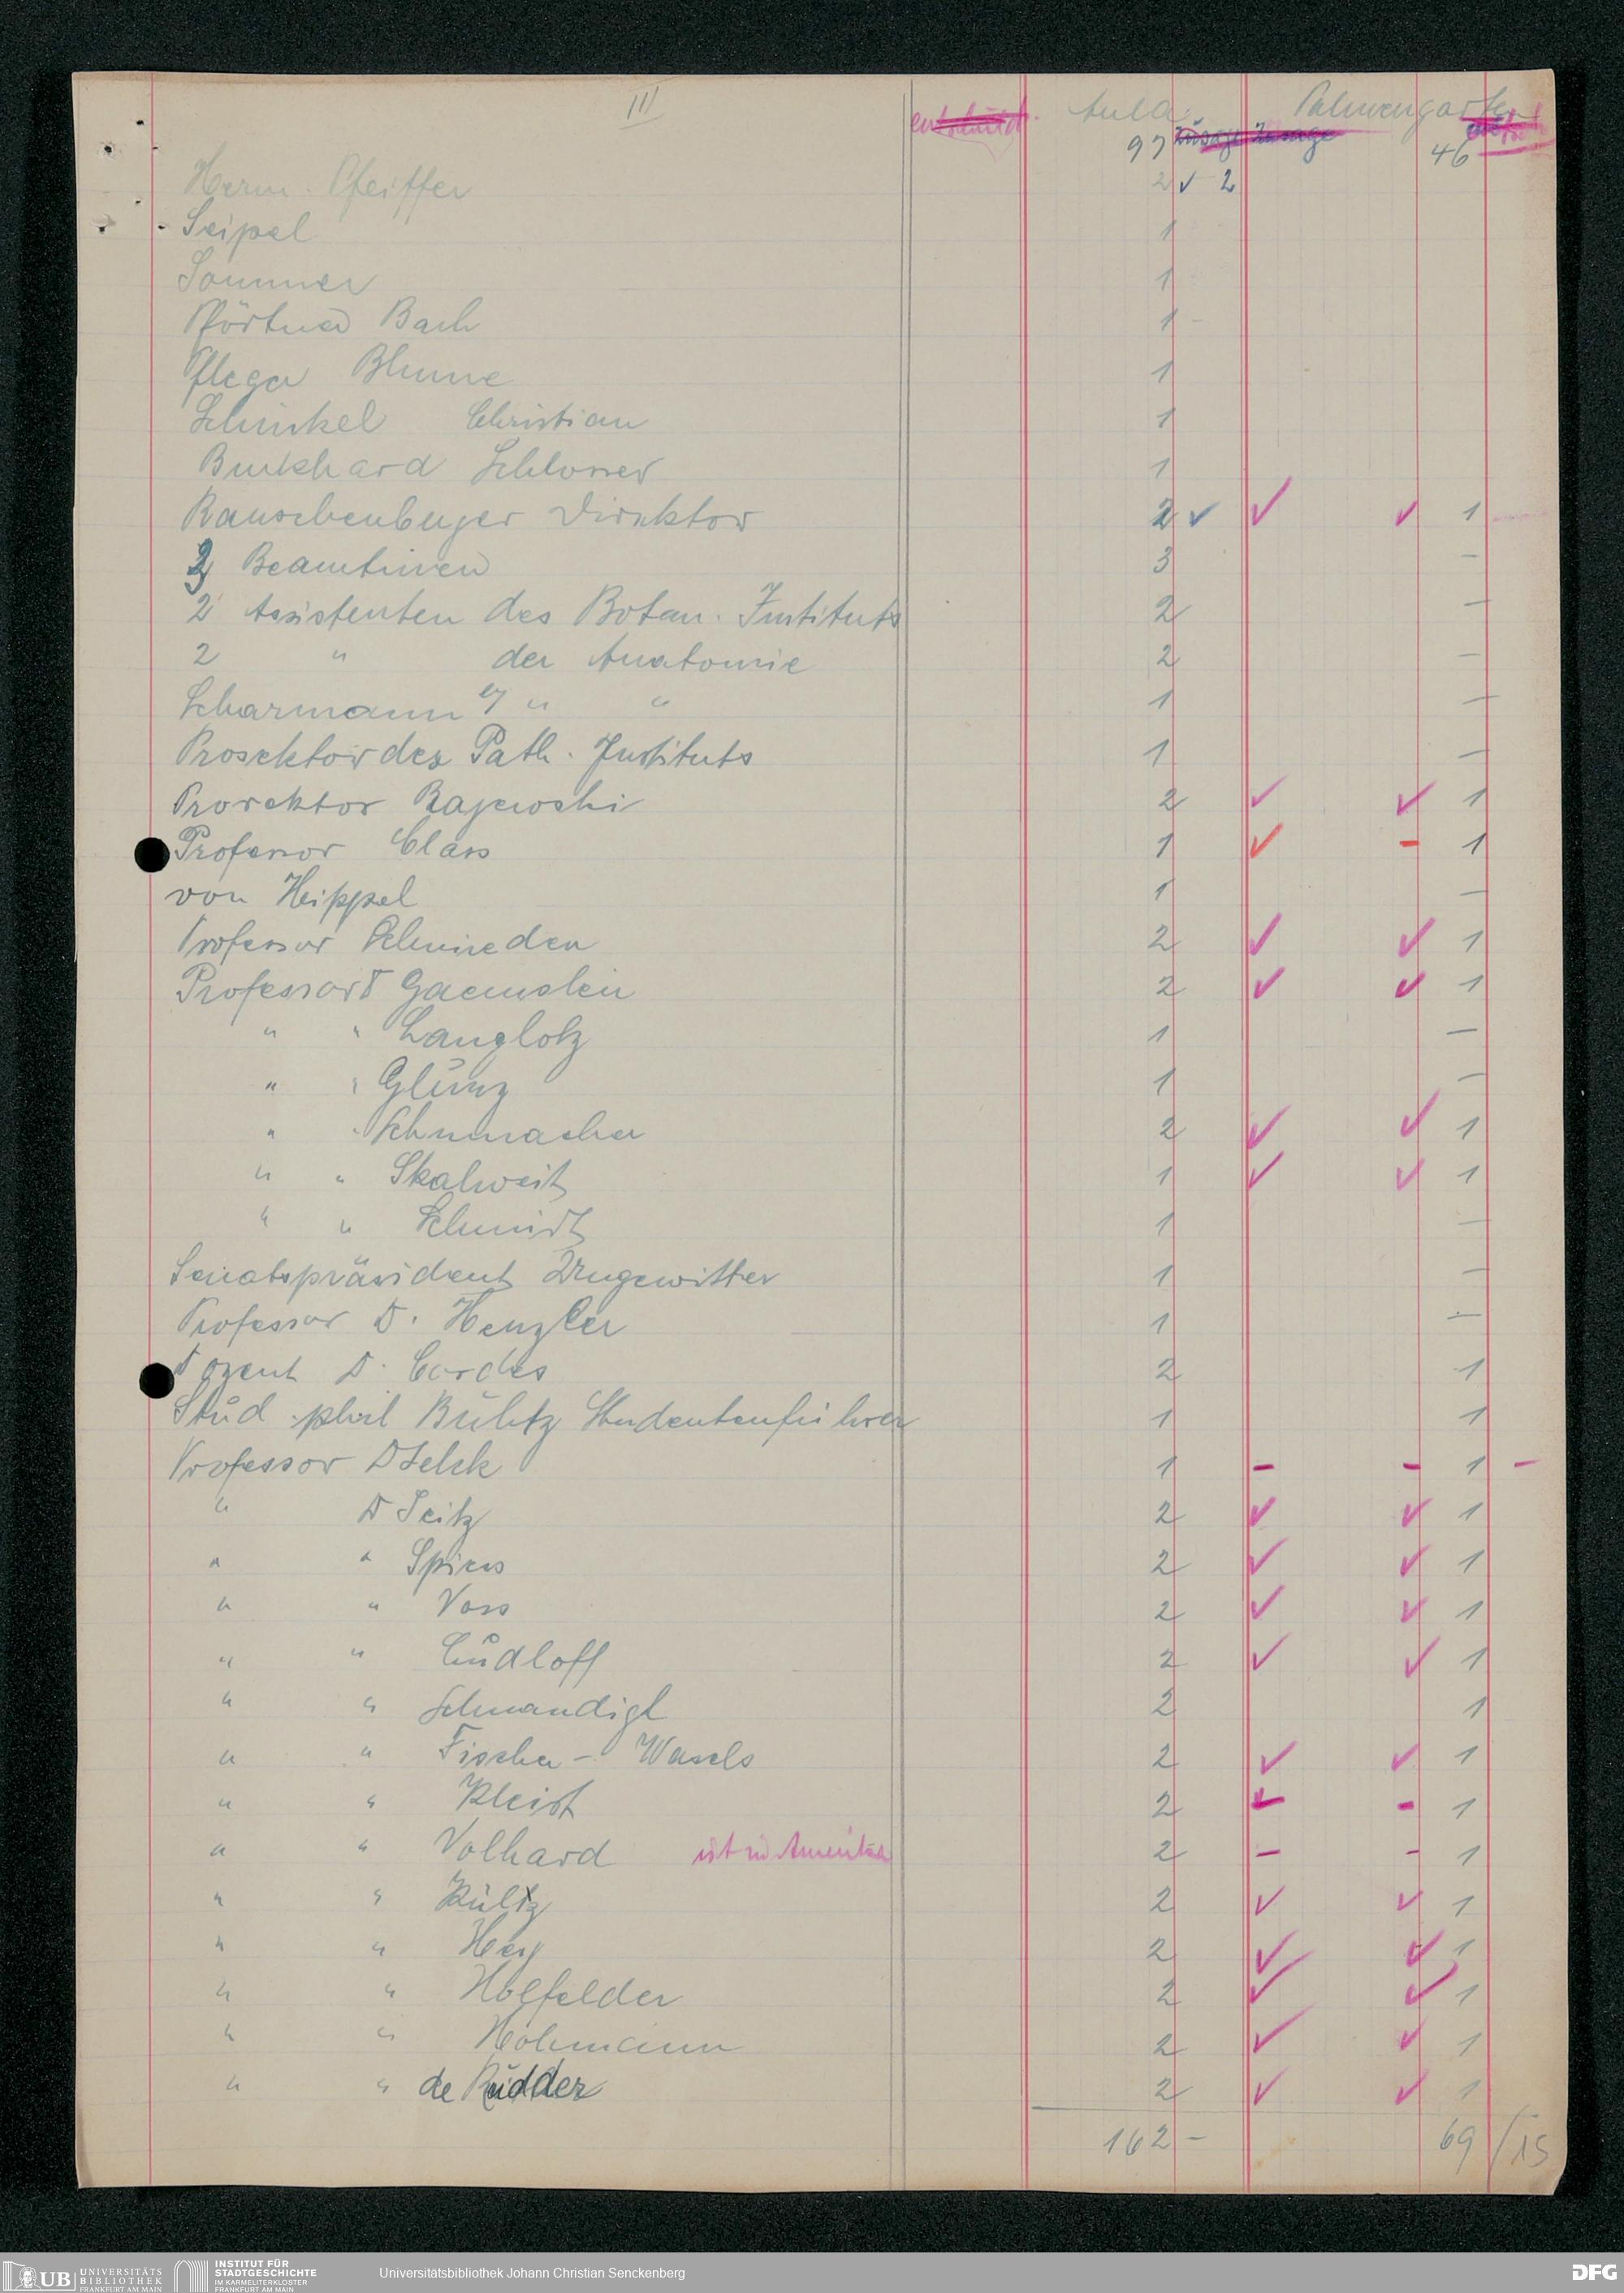 III
Aula Palmengarten
97 46
Herm. Pfeiffer 2 ✓ 2
Seipel 1
Sommer 1
Pförtner Bach 1 -
Pfleger Blume 1
Schinkel Christian 1
Burkhard Schlosser 1
Rauschenberger Direktor 2 ✓ ✓ ✓ 1
Beamtinnen 3 —
2 Assistenten des Botan. Instituts 2 —
2 " der Anatomie 2 —
Scharmann " " 1 —
Prosektor des Path. Instituts 1 —
Prorektor Rajewski 2 ✓ ✓ 1
Professor Class 1 ✓ - 1
von Hippel 1 —
Professor Schmieden 2 ✓ ✓ 1
Professor D Gaensslen 2 ✓ ✓ 1
" " Langlotz 1 —
" " Glunz 1 —
" " Schumacher 2 ✓ ✓ 1
" " Skalweit 1 ✓ ✓ 1
" " Schmidt 1 —
Senatspräsident Ungewitter 1 —
Professor D. Henzler 1 —
Dozent D. Cordes 2 1
Stud. phil Bültz Studentenführer 1 1
Professor D Jelck 1 - - 1 -
" D Seitz 2 ✓ ✓ 1
" " Spiess 2 ✓ ✓ 1
" " Voss 2 ✓ ✓ 1
" " Cudloff 2 ✓ ✓ 1
" " Schwandigl 2 1
" " Fischer - Wasels 2 ✓ ✓ 1
" " Kleist 2 ✓ - 1
" " Volhard ist in Amerika 2 - - 1
" " Külz 2 ✓ ✓ 1
" " Hey 2 ✓ ✓ 1
" " Holfelder 2 ✓ ✓ 1
" " Hohmann 2 ✓ ✓ 1
" " de Rudder 2 ✓ ✓ 1
162 - 69 / 15
UB UNIVERSITÄTS
BIBLIOTHEK
FRANKFURT AM MAIN
INSTITUT FÜR
STADTGESCHICHTE
IM KARMELITERKLOSTER
FRANKFURT AM MAIN
Universitätsbibliothek Johann Christian Senckenberg
DFG